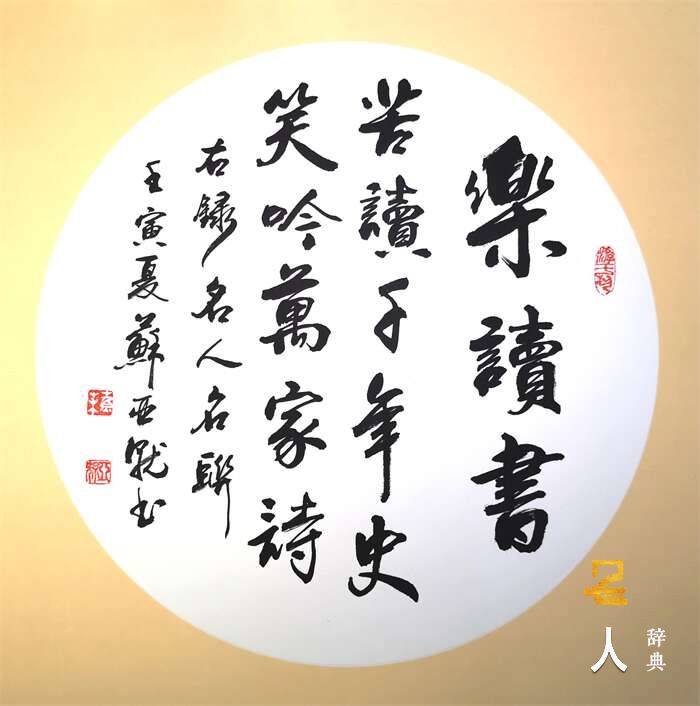 樂讀書
苦讀千年史
笑吟萬家詩
右錄名人名聯
壬寅夏蘇亚
书
名人
辞典